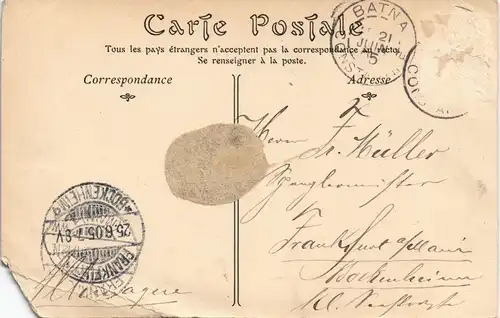 Carte Postale
Tous les pays étrangers n'acceptent pas la correspondance au recto.
Se renseigner à la poste.
Correspondance
Adresse
BATNA
21
JUIN
5
CONST
Herrn
Fr. Müller
Spenglermeister
Frankfurt a/Main
Bockenheim
Allemagne
25.6.05.7-8V.
FRANKFURT
BOCKENHEIM